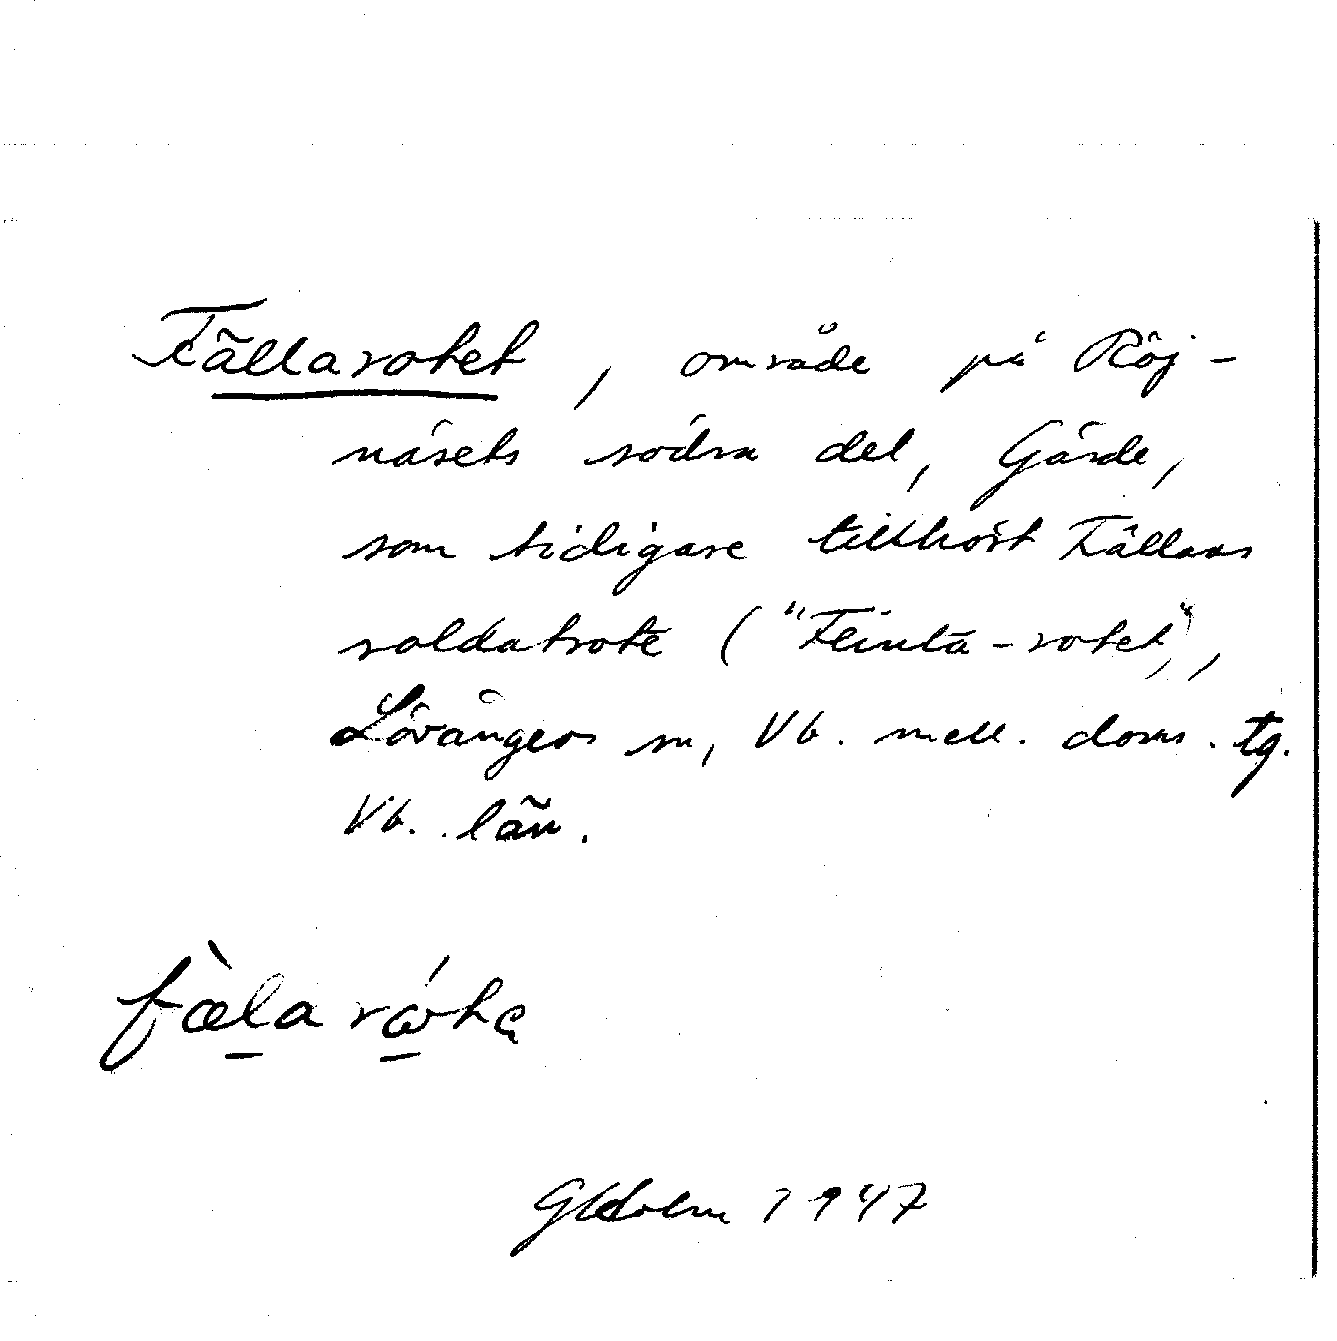 Fällarotet, område på Röj-
näsets södra del, Gärde,
som tidigare tillhört Fällans
soldatrote ("Flinta-rotet",
Lövångers sn, Vb. mell. doms. tg.
Vb. län.
fæla
1947